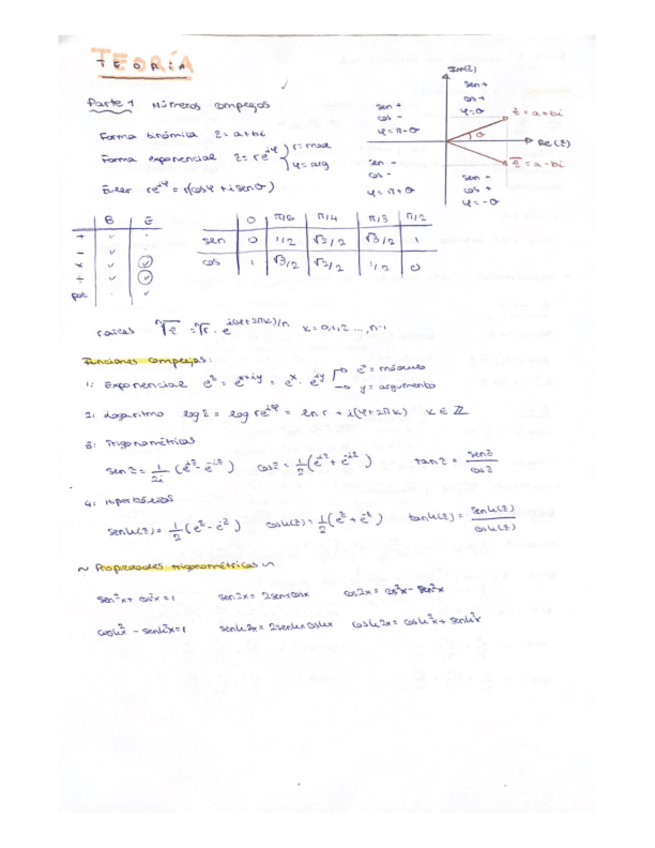 TEORÍA
Parte 1 Números complejos
Forma binómica z = a+bi
Forma exponencial z = re^{iφ} } r = mod
φ = arg
Euler re^{iφ} = r(cosφ + i senθ)
Im(z)
sen +
cos +
φ = θ
sen +
cos -
φ = π-θ
sen -
cos -
φ = π+θ
sen -
cos +
φ = -θ
z = a+bi
θ
Re(z)
z̄ = a-bi
B E
+ ✓ ·
- ✓ ·
× ✓ ✓
÷ ✓ ✓
pot · ✓
0 π/6 π/4 π/3 π/2
sen 0 1/2 √2/2 √3/2 1
cos 1 √3/2 √2/2 1/2 0
raíces ⁿ√z = ⁿ√r · e^{i(φ+2πk)/n} k = 0,1,2 ..., n-1
Funciones complejas:
1: Exponencial e^z = e^{x+iy} = e^x · e^{iy} → e^x = módulo
→ y = argumento
2: Logaritmo log z = log re^{iφ} = ln r + i(φ+2πk) k ∈ ℤ
3: Trigonométricas
sen z = 1/2i (e^{iz} - e^{-iz}) cos z = 1/2 (e^{iz} + e^{-iz}) tan z = sen z / cos z
4: Hiperbólicas
senh(z) = 1/2 (e^z - e^{-z}) cosh(z) = 1/2 (e^z + e^{-z}) tanh(z) = senh(z) / cosh(z)
~ Propiedades trigonométricas ~
sen²x + cos²x = 1 sen2x = 2senxcosx cos2x = cos²x - sen²x
cosh²x - senh²x = 1 senh2x = 2senhxcoshx cosh2x = cosh²x + senh²x